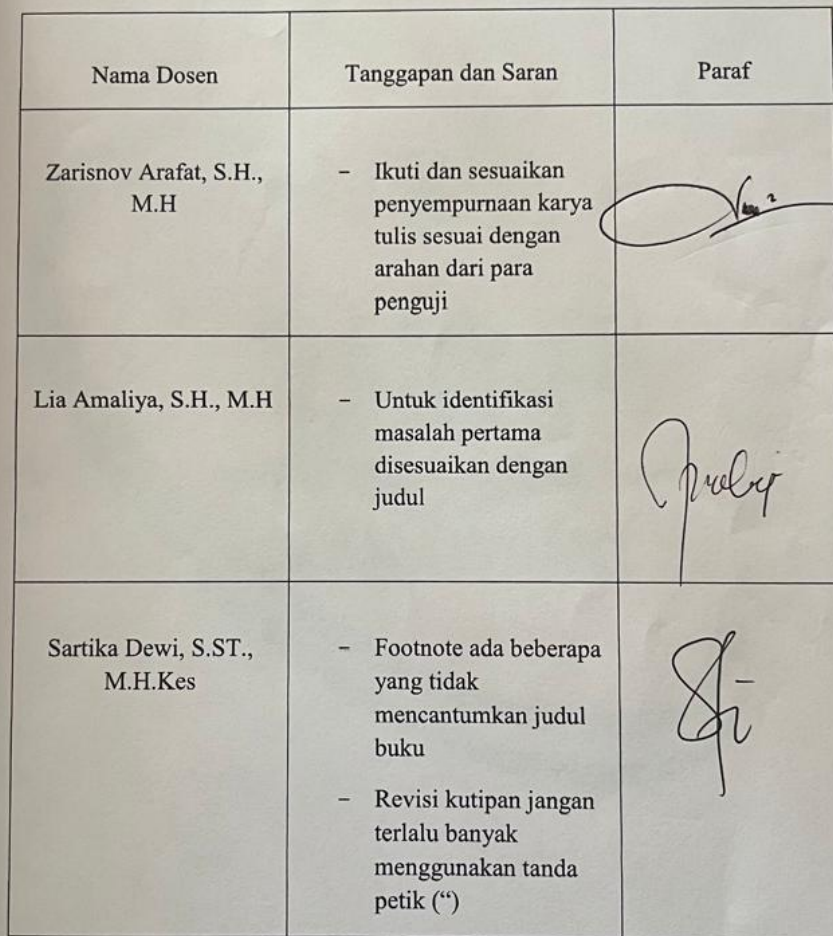 Nama Dosen
Tanggapan dan Saran
Paraf
Zarisnov Arafat, S.H.,
M.H
- Ikuti dan sesuaikan
penyempurnaan karya
tulis sesuai dengan
arahan dari para
penguji
Lia Amaliya, S.H., M.H
- Untuk identifikasi
masalah pertama
disesuaikan dengan
judul
Sartika Dewi, S.ST.,
M.H.Kes
- Footnote ada beberapa
yang tidak
mencantumkan judul
buku
- Revisi kutipan jangan
terlalu banyak
menggunakan tanda
petik (“)